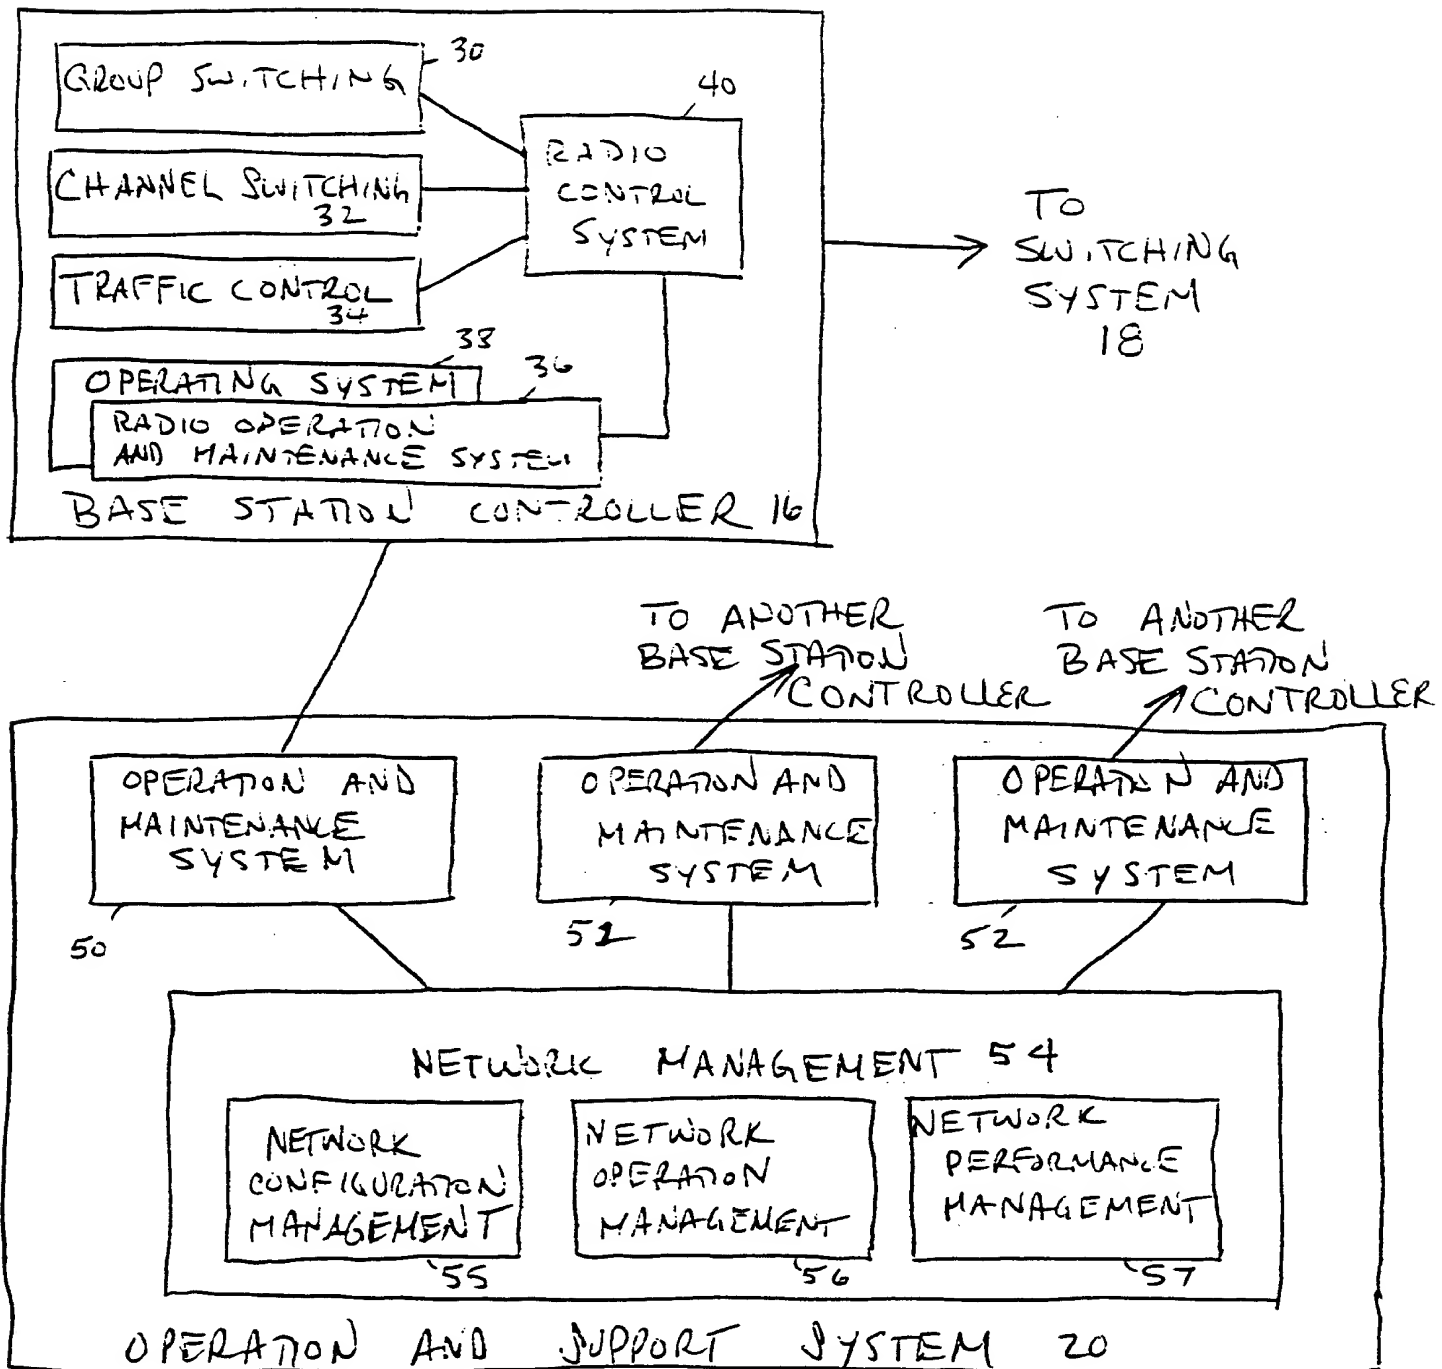 30
GROUP SWITCHING
40
RADIO
CONTROL
SYSTEM
CHANNEL SWITCHING
32
TRAFFIC CONTROL
34
TO
SWITCHING
SYSTEM
18
38
OPERATING SYSTEM
36
RADIO OPERATION
AND MAINTENANCE SYSTEM
BASE STATION CONTROLLER 16
TO ANOTHER
BASE STATION
CONTROLLER
TO ANOTHER
BASE STATION
CONTROLLER
OPERATION AND
MAINTENANCE
SYSTEM
50
OPERATION AND
MAINTENANCE
SYSTEM
51
OPERATION AND
MAINTENANCE
SYSTEM
52
NETWORK MANAGEMENT 54
NETWORK
CONFIGURATION
MANAGEMENT
55
NETWORK
OPERATION
MANAGEMENT
56
NETWORK
PERFORMANCE
MANAGEMENT
57
OPERATION AND SUPPORT SYSTEM 20